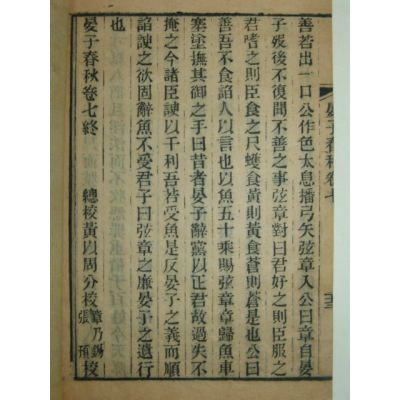 善若出一口公作色太息播弓矢弦章入公曰章自晏
子歿後不復聞不善之事弦章對曰君好之則臣服之
君嗜之則臣食之尺蠖食黃則黃食蒼則蒼是也公曰
善吾不食諂人以言也以魚五十乘賜弦章章歸魚車
塞塗撫其御之手曰昔者晏子辭黨以正君故過失不
掩之今諸臣諛以干利吾若受魚是反晏子之義而順
諂諛之欲固辭魚不受君子曰弦章之廉晏子之遺行
也
晏子春秋卷七終 總校黃以周分校章乃錫張預校
晏子春秋卷七